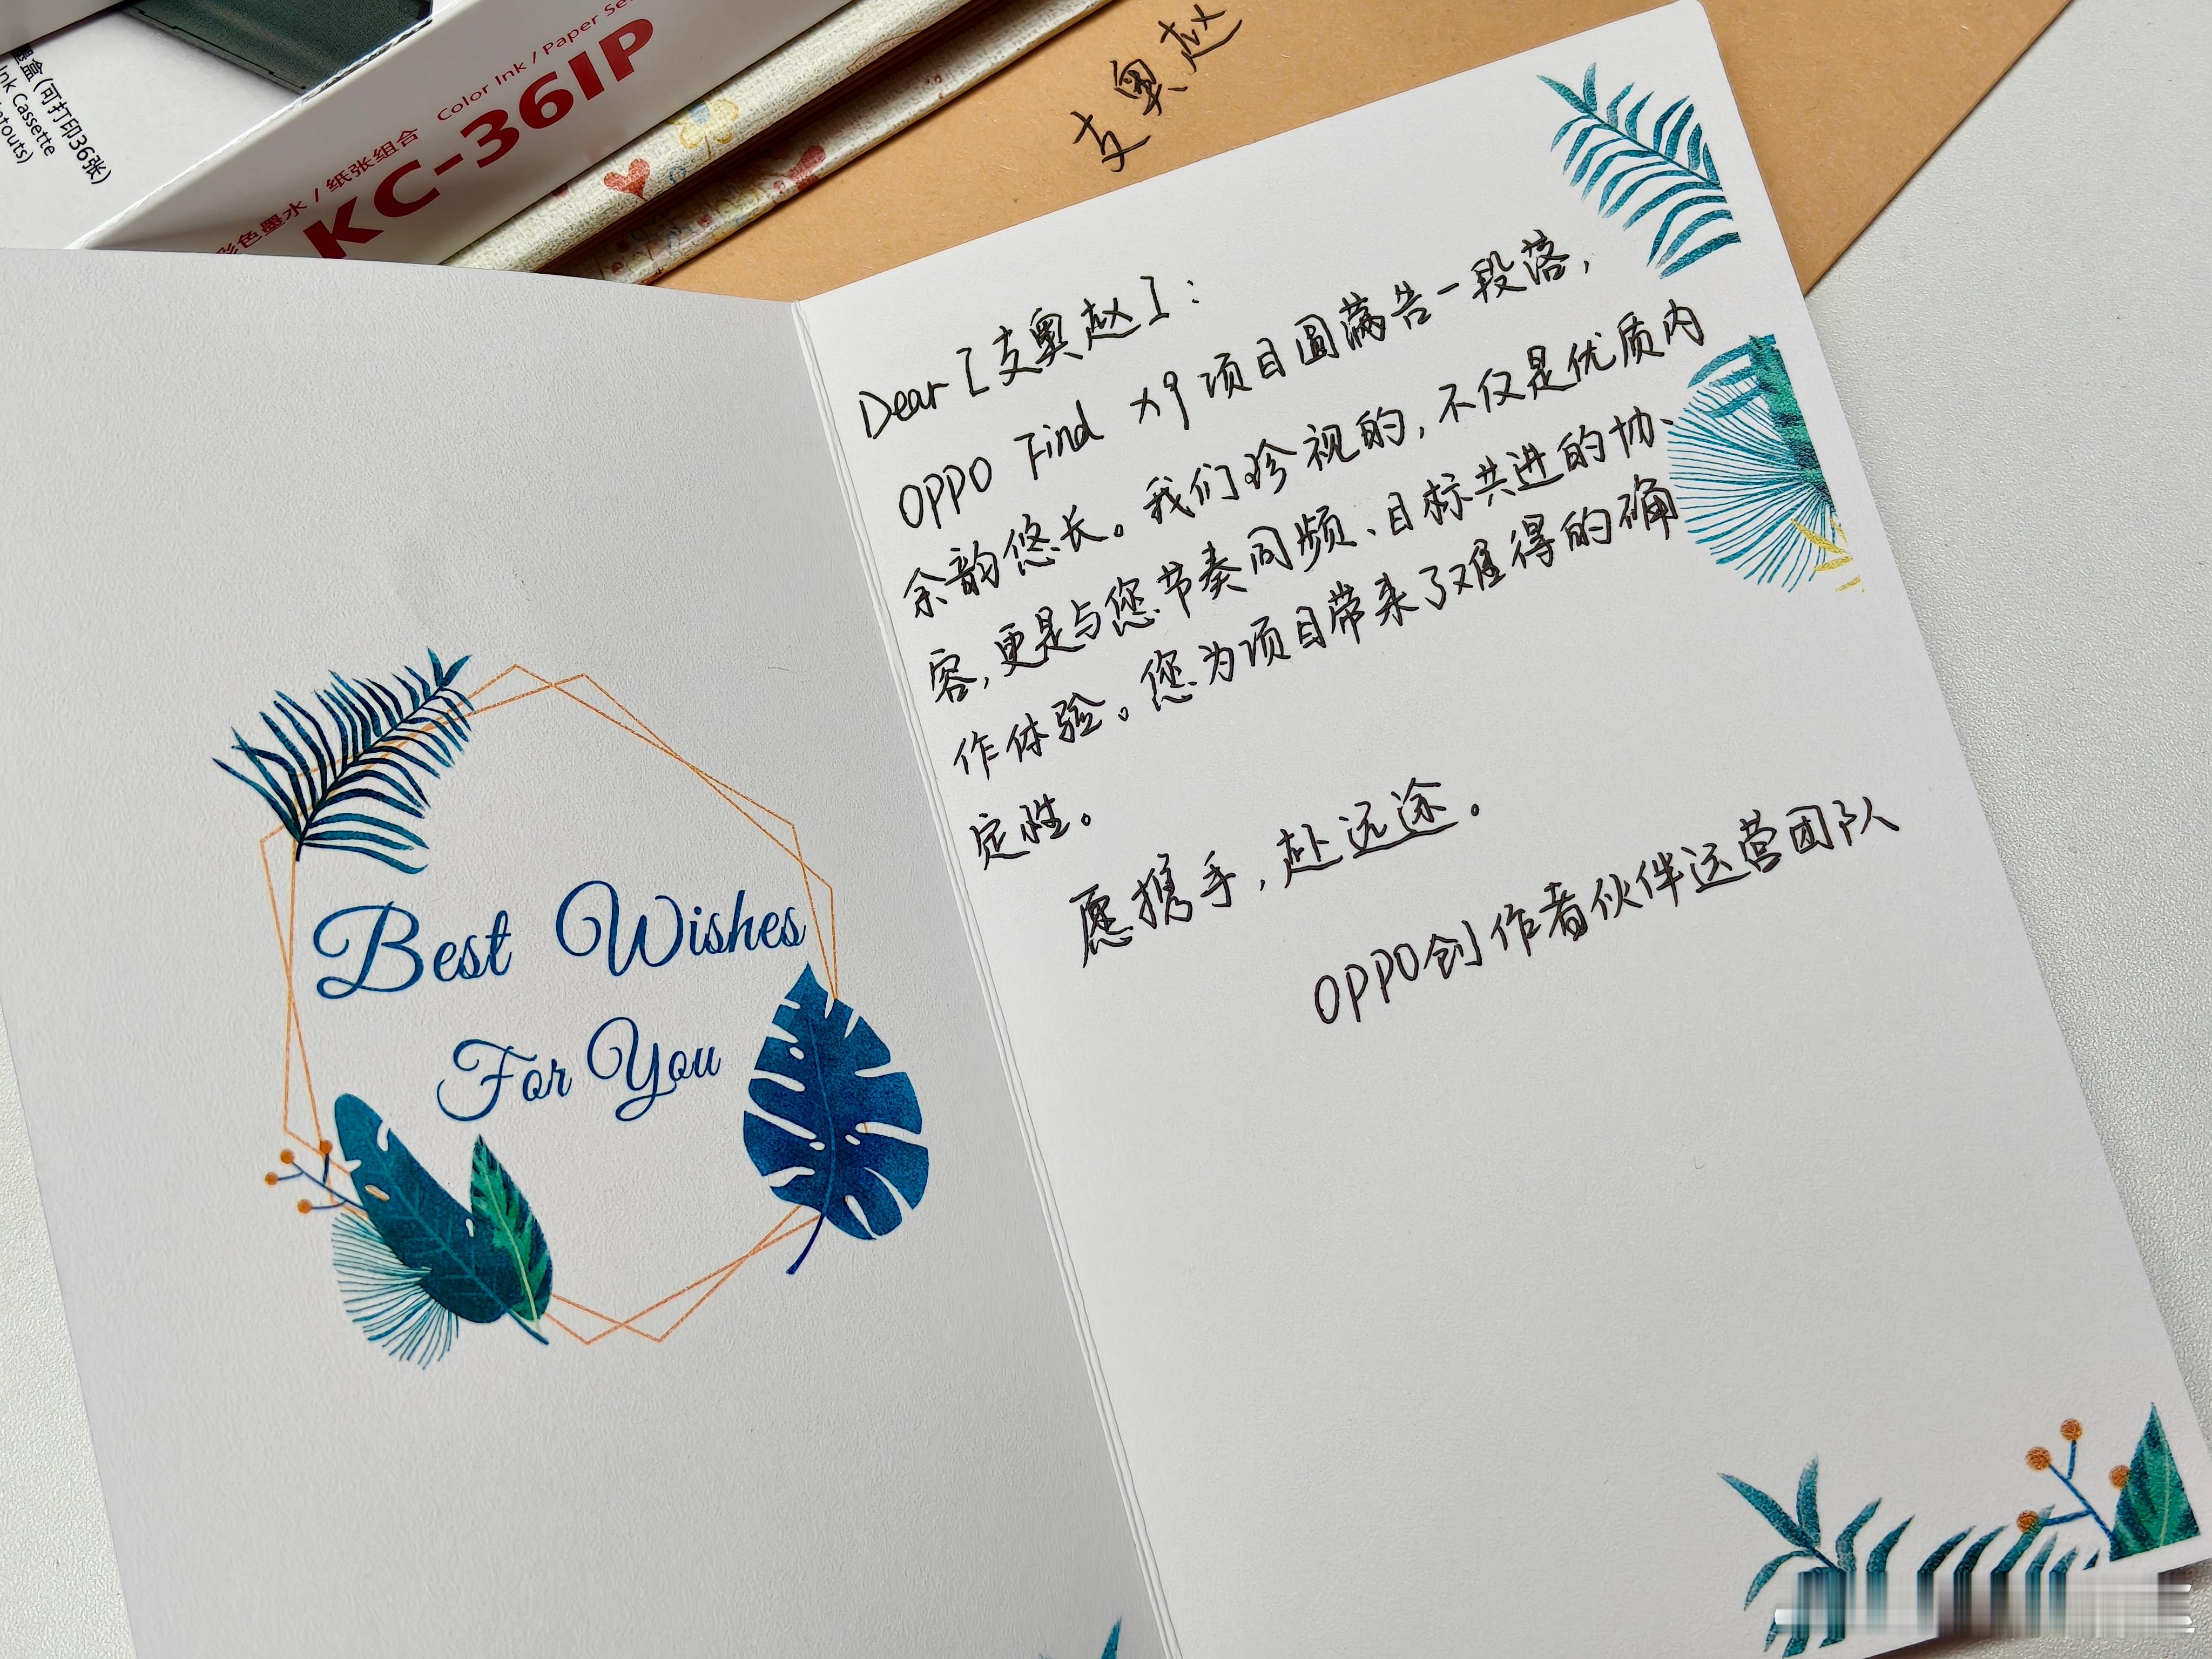 墨盒(可打印36张)
Ink Cassette
彩色墨水 / 纸张组合 Color Ink / Paper Se
KC-36IP
支奥赵
Dear [支奥赵]:
OPPO Find x9项目圆满告一段落,
余韵悠长。我们珍视的,不仅是优质内
容,更是与您节奏同频、目标共进的协
作体验。您为项目带来了难得的确
定性。
愿携手,赴远途。
OPPO创作者伙伴运营团队
Best Wishes
For You